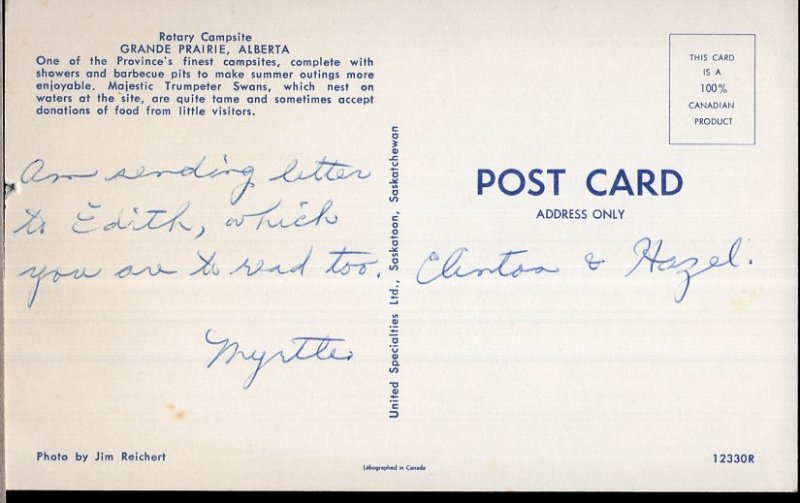 Rotary Campsite
GRANDE PRAIRIE, ALBERTA
One of the Province's finest campsites, complete with
showers and barbecue pits to make summer outings more
enjoyable. Majestic Trumpeter Swans, which nest on
waters at the site, are quite tame and sometimes accept
donations of food from little visitors.
Am sending letter
to Edith, which
you are to read too.
Myrtle
Photo by Jim Reichert
United Specialties Ltd., Saskatoon, Saskatchewan
Lithographed in Canada
THIS CARD
IS A
100%
CANADIAN
PRODUCT
POST CARD
ADDRESS ONLY
Clinton & Hazel.
12330R